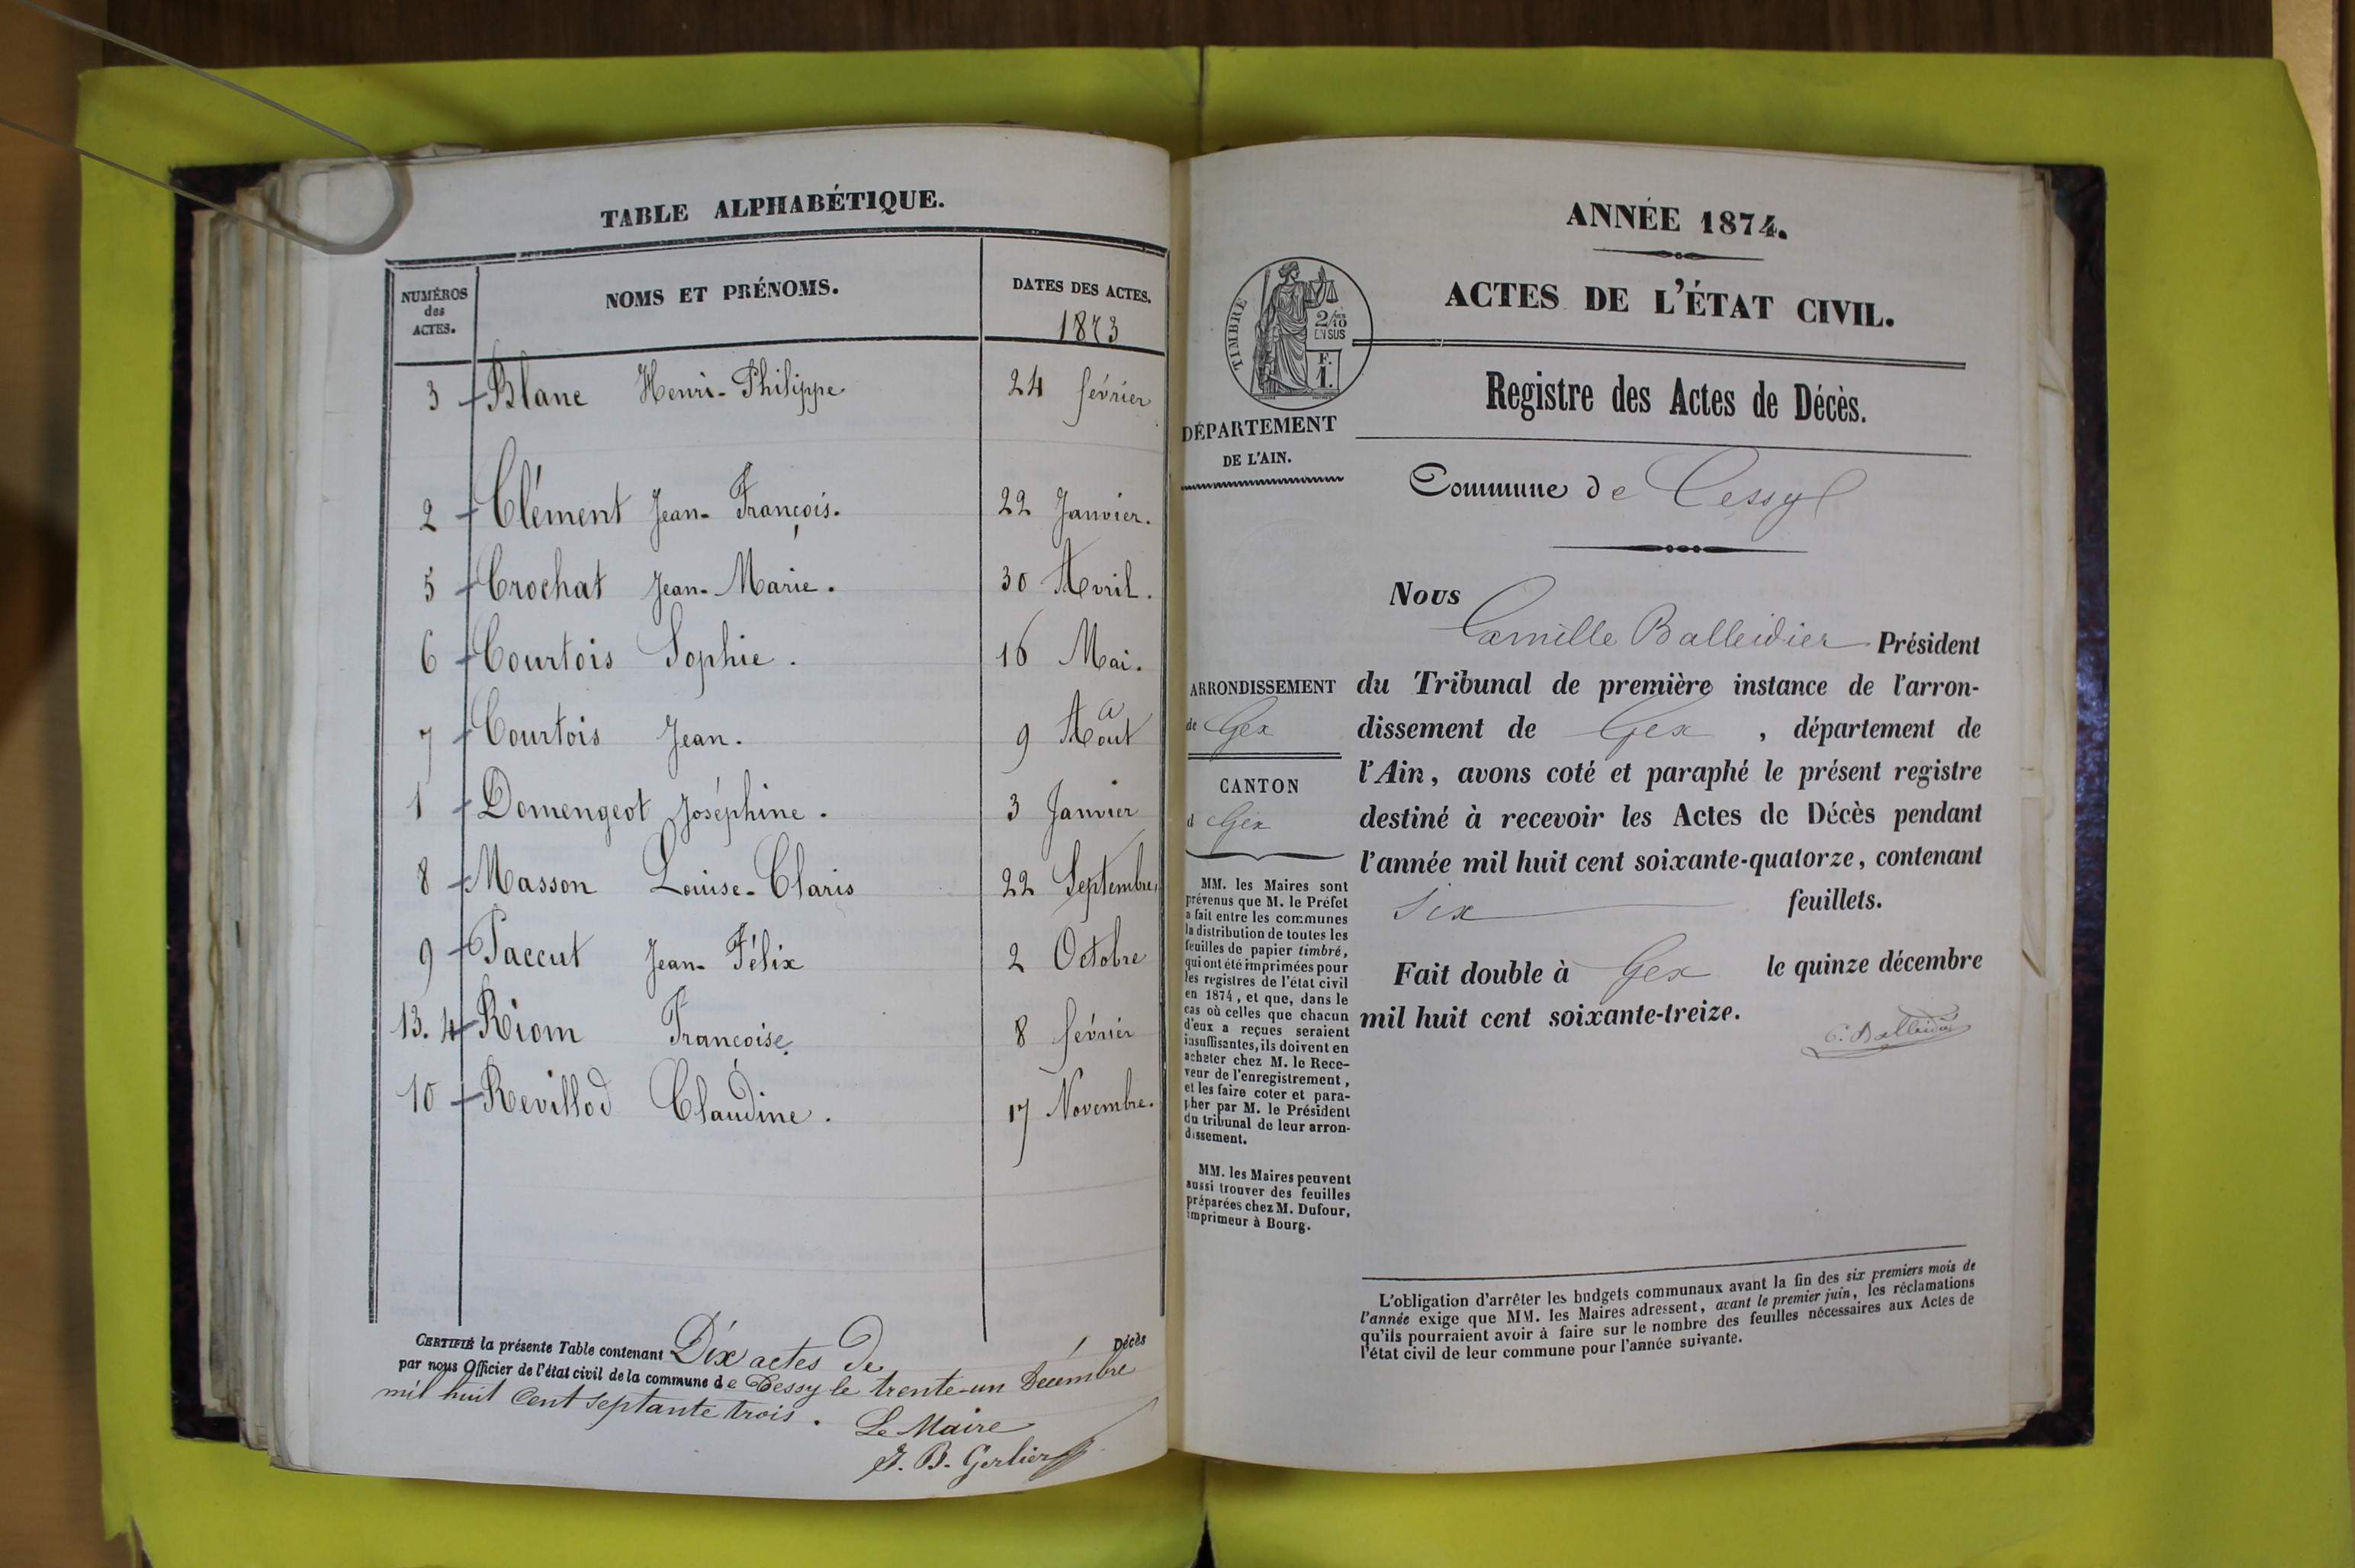 TABLE ALPHABÉTIQUE.
NUMÉROS des ACTES.
NOMS ET PRÉNOMS.
DATES DES ACTES.
1873
3 Blanc Henri-Philippe 24 février
2 Clément Jean-François. 22 Janvier.
5 Crochat Jean-Marie. 30 Avril.
6 Courtois Sophie. 16 Mai.
7 Courtois Jean. 9 Aout
1 Domengeot Joséphine. 3 Janvier
8 Masson Louise-Claris 22 Septembre
9 Paccut Jean-Félix 2 Octobre
13. 4 Riom Francoise 8 février
10 Revillod Claudine. 17 Novembre.
CERTIFIÉ la présente Table contenant Dix actes de Décès
par nous Officier de l'état civil de la commune de Cessy le trente-un Décembre
mil huit cent septante trois.
Le Maire
J. B. Gerlier
ANNÉE 1874.
ACTES DE L'ÉTAT CIVIL.
TIMBRE
2/10
EN SUS
F.
1.
Registre des Actes de Décès.
DÉPARTEMENT
DE L'AIN.
Commune de Cessy
Nous
Camille Balleidier Président
du Tribunal de première instance de l'arron-
dissement de Gex, département de
l'Ain, avons coté et paraphé le présent registre
destiné à recevoir les Actes de Décès pendant
l'année mil huit cent soixante-quatorze, contenant
six feuillets.
Fait double à Gex le quinze décembre
mil huit cent soixante-treize.
C. Balleidier
ARRONDISSEMENT
de Gex
CANTON
d Gex
MM. les Maires sont
prévenus que M. le Préfet
a fait entre les communes
la distribution de toutes les
feuilles de papier timbré,
qui ont été imprimées pour
les registres de l'état civil
en 1874, et que, dans le
cas où celles que chacun
d'eux a reçues seraient
insuffisantes, ils doivent en
acheter chez M. le Rece-
veur de l'enregistrement,
et les faire coter et para-
pher par M. le Président
du tribunal de leur arron-
dissement.
MM. les Maires peuvent
aussi trouver des feuilles
préparées chez M. Dufour,
imprimeur à Bourg.
L'obligation d'arrêter les budgets communaux avant la fin des six premiers mois de
l'année exige que MM. les Maires adressent, avant le premier juin, les réclamations
qu'ils pourraient avoir à faire sur le nombre des feuilles nécessaires aux Actes de
l'état civil de leur commune pour l'année suivante.